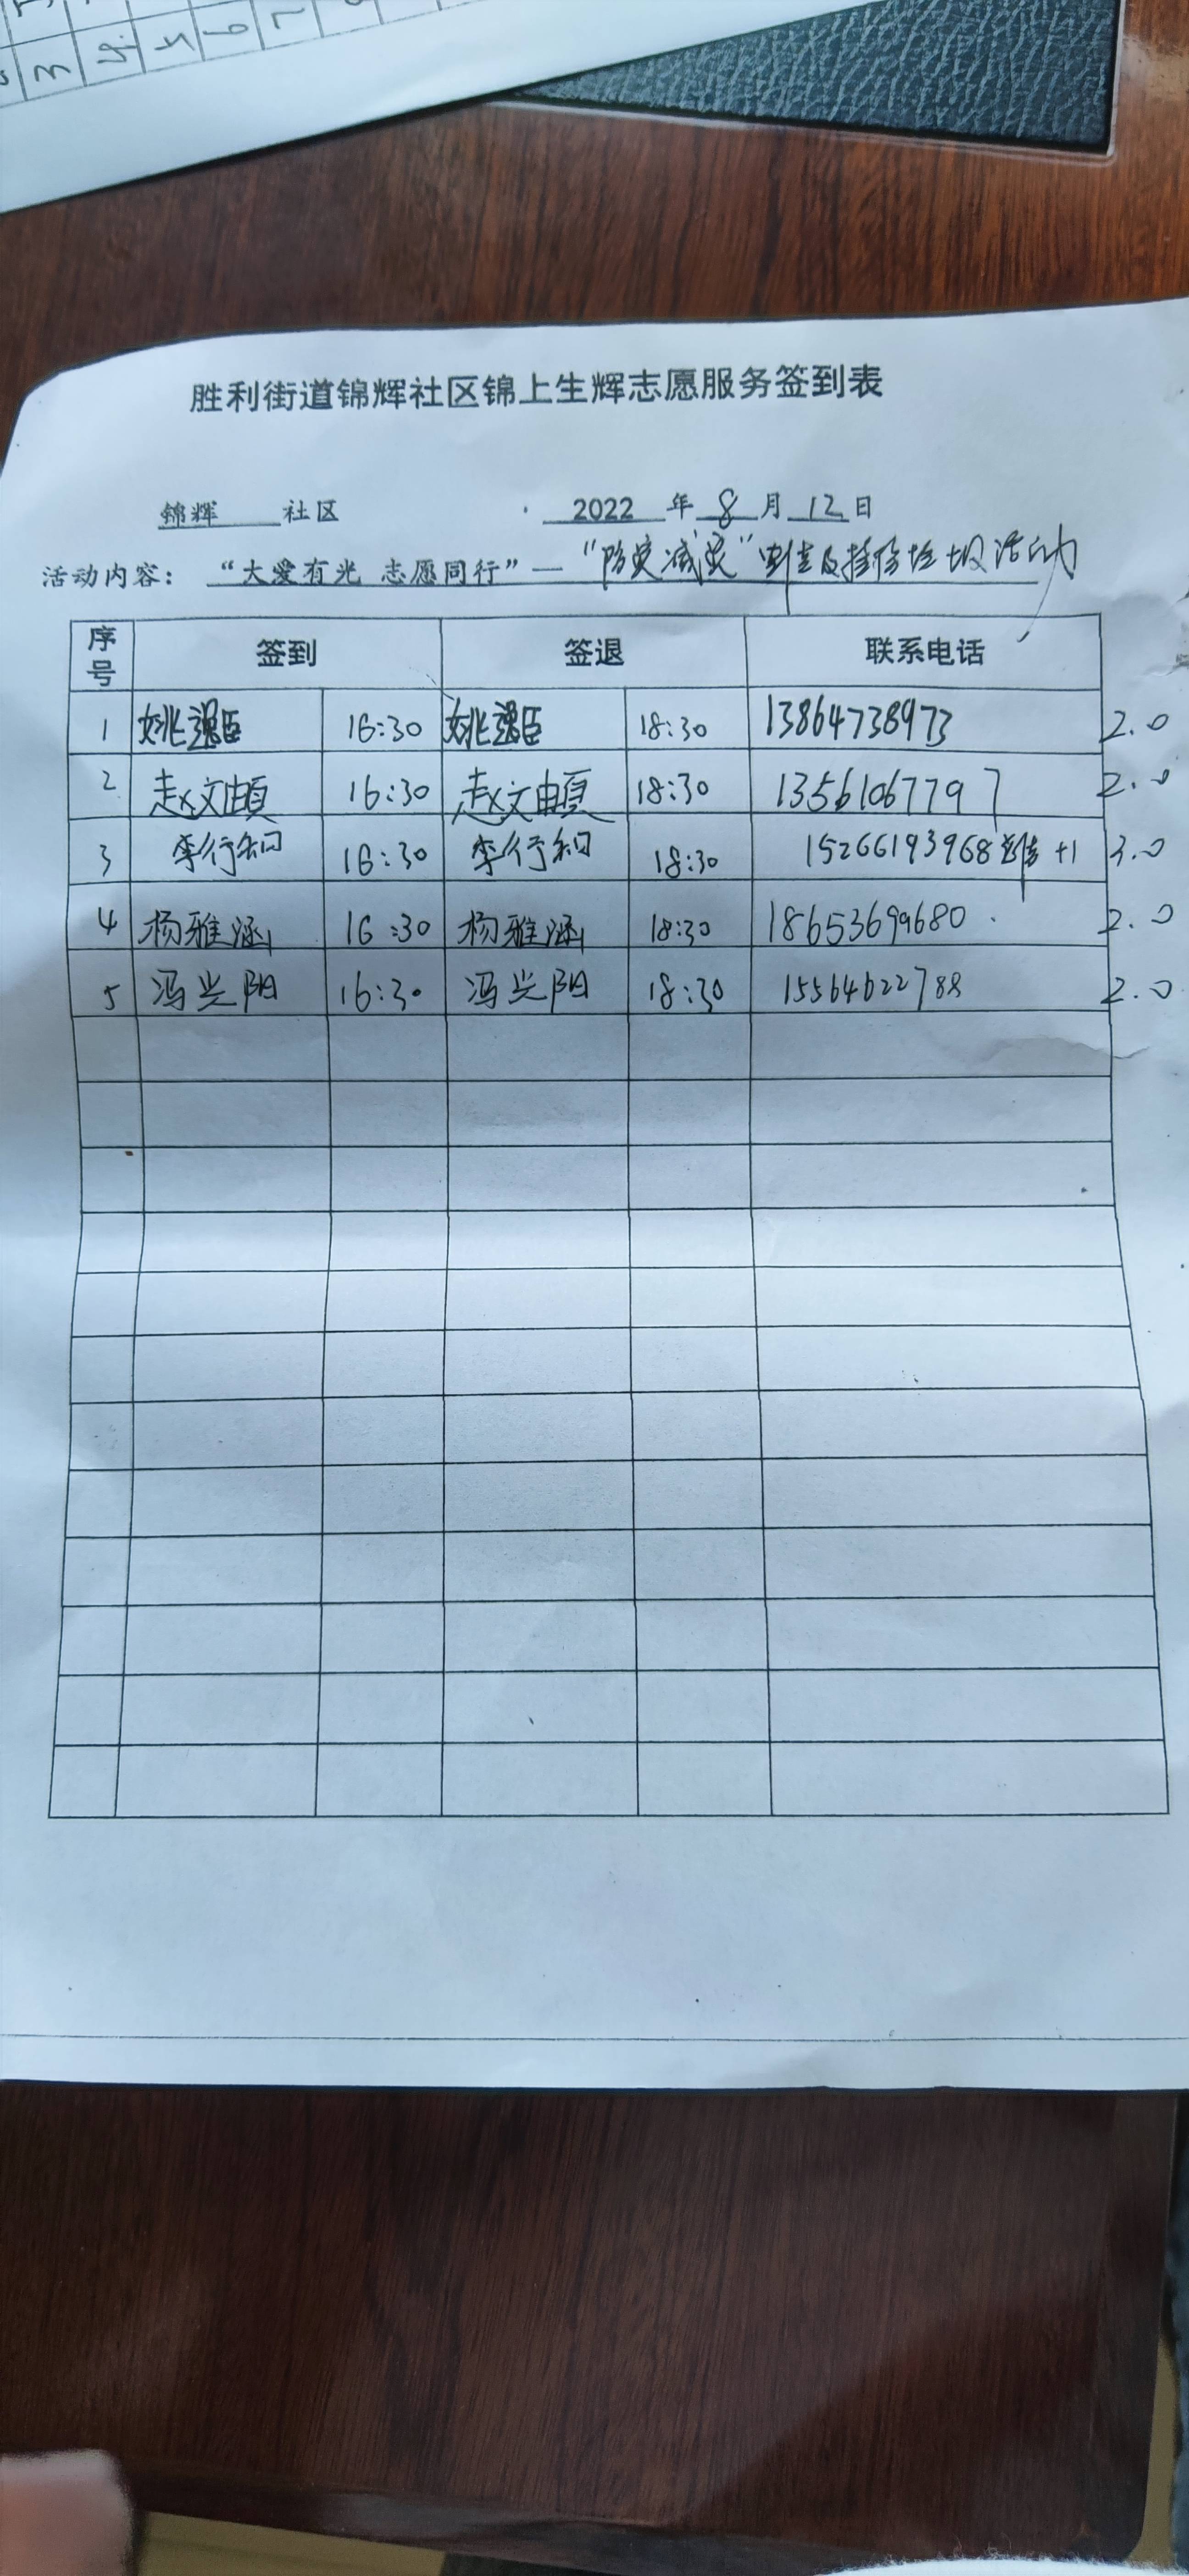 3 4. 5 6 7
胜利街道锦辉社区锦上生辉志愿服务签到表
锦辉 社区 2022 年 8 月 12 日
活动内容： “大爱有光 志愿同行”— “防灾减灾” 及捡拾垃圾活动
序号 签到 签退 联系电话
1 姚逸臣 16:30 姚逸臣 18:30 13864738973 2.0
2 赵文 16:30 赵文 18:30 13561067797 2.0
3 李行知 16:30 李行知 18:30 15266193968 +1 3.0
4 杨雅涵 16:30 杨雅涵 18:30 18653699680 2.0
5 冯兴阳 16:30 冯兴阳 18:30 15564622788 2.0